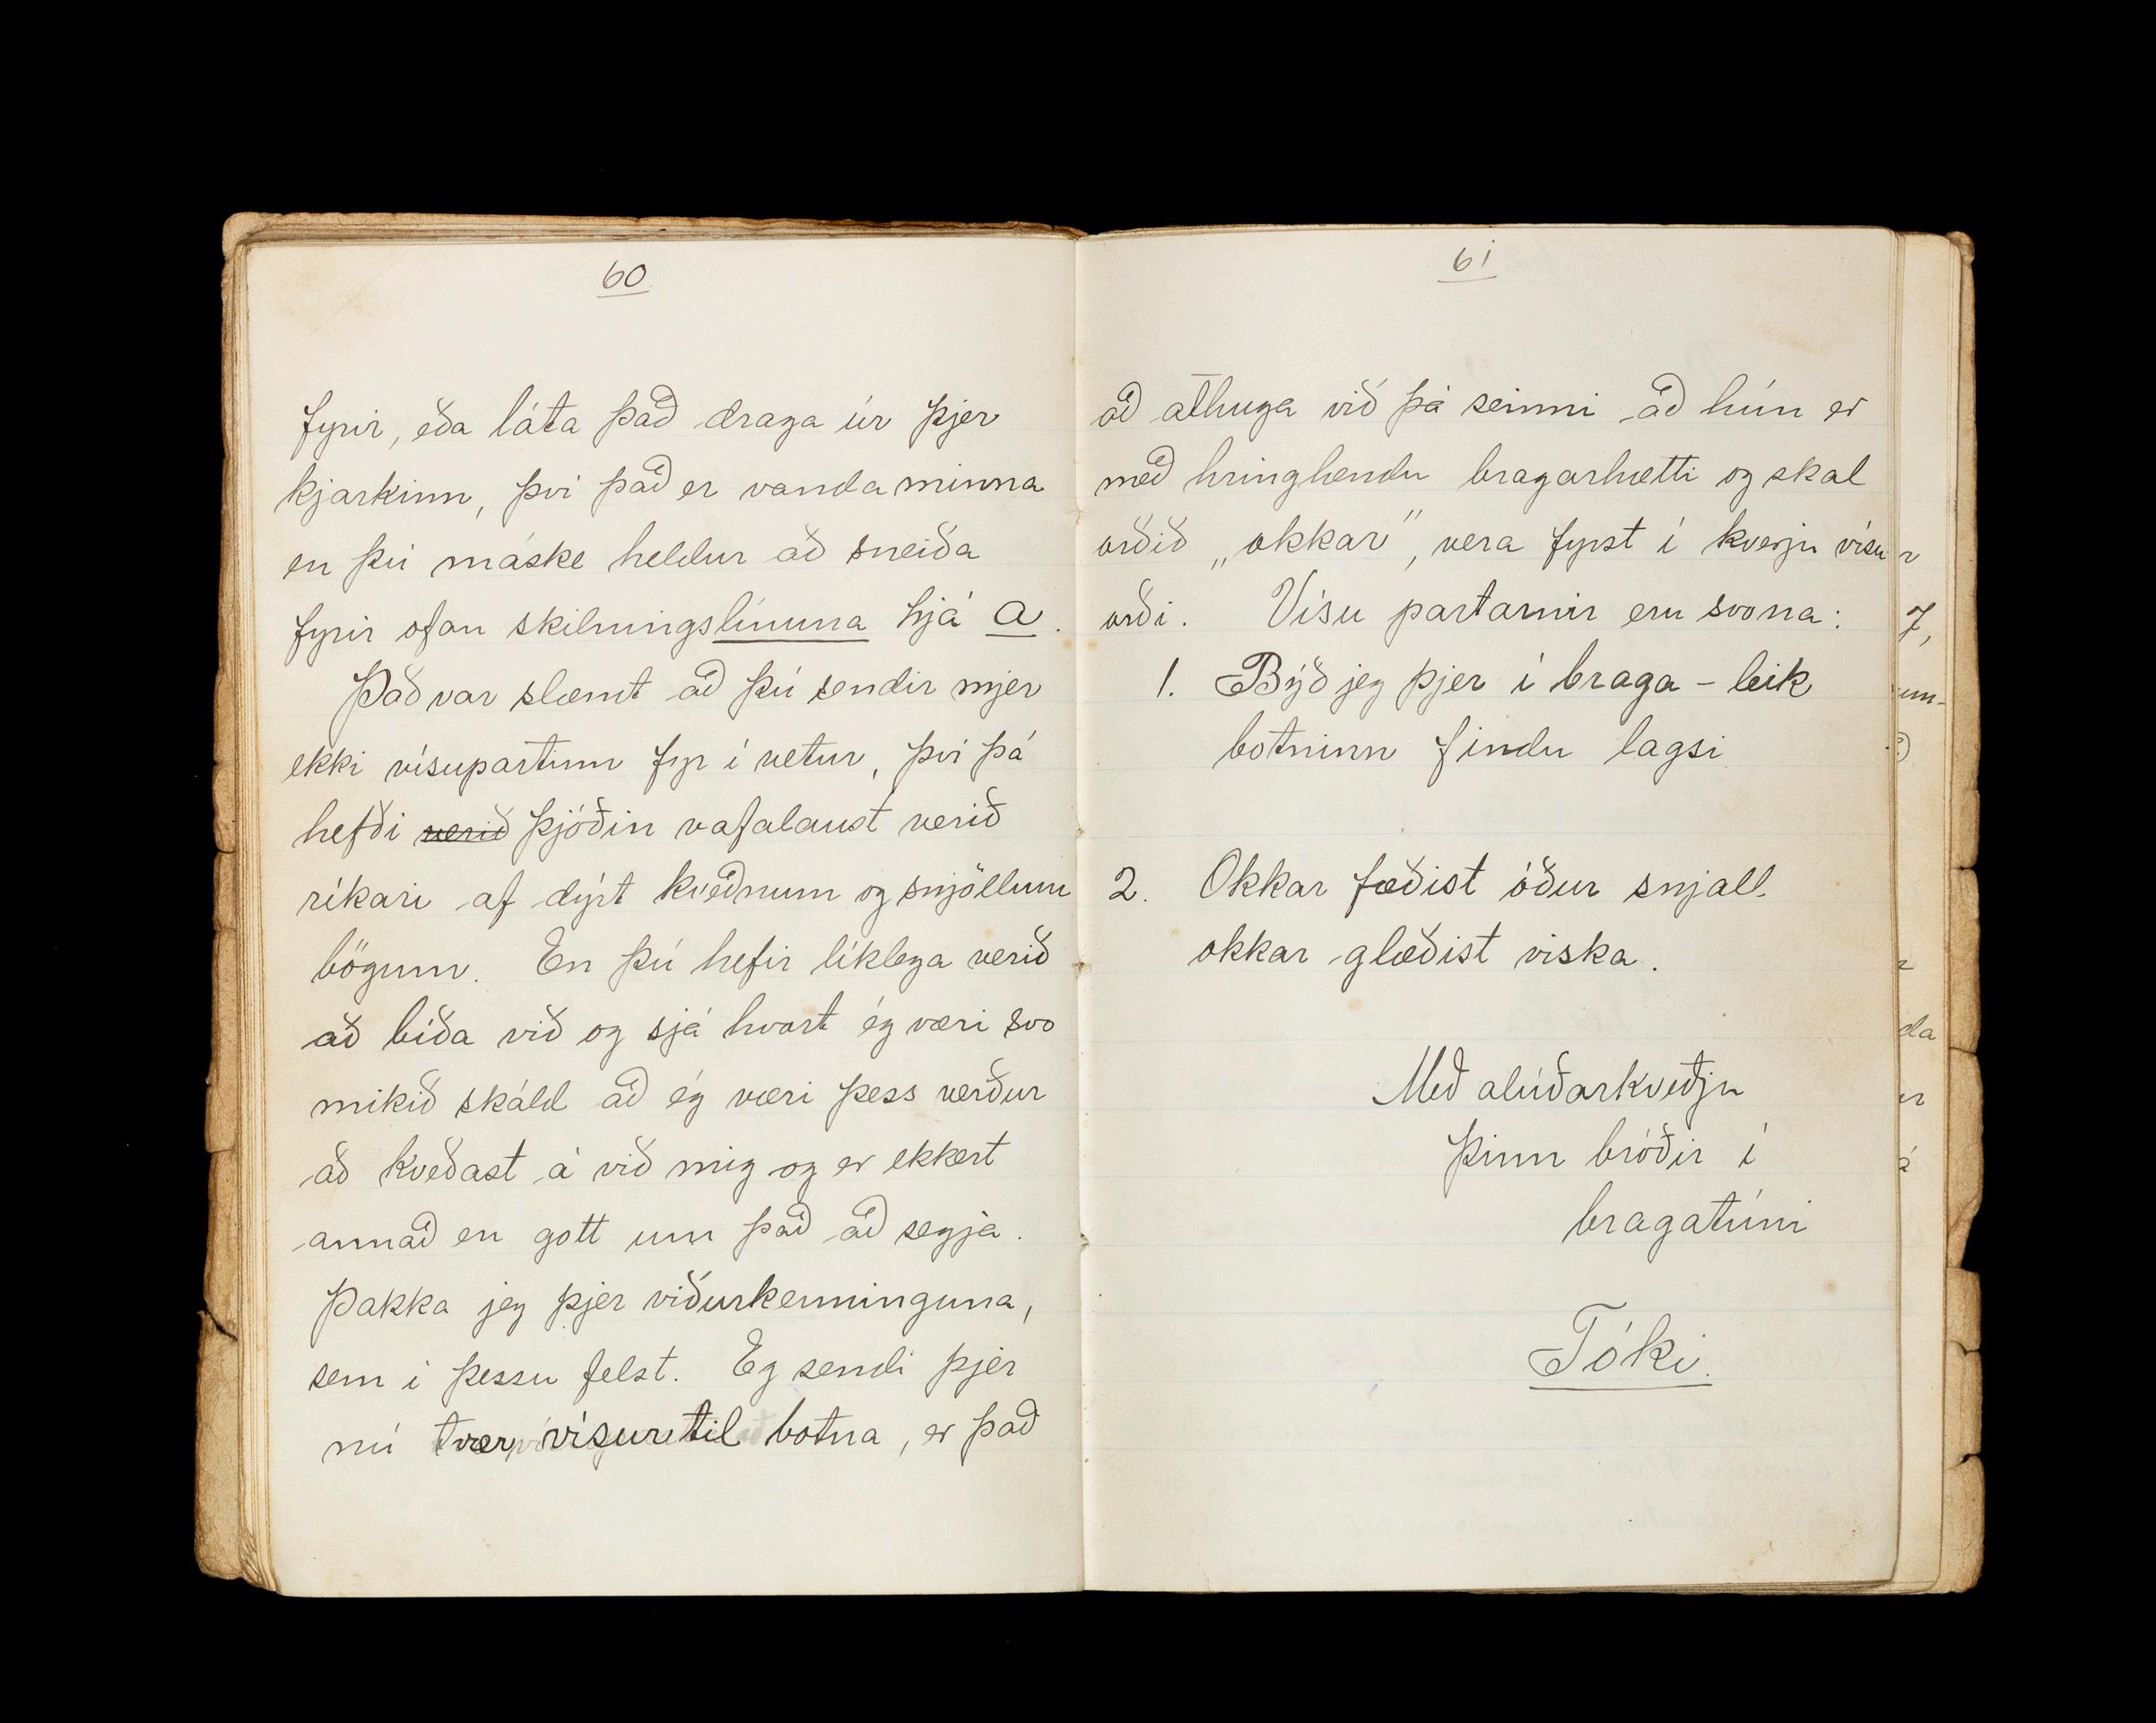 60
fyrir, eða láta það draga úr þjer
kjarkinn, því það er vandaminna
en þú máske heldur að sneiða
fyrir ofan skilningslínuna hjá a.
Það var slæmt að þú sendir mjer
ekki vísupartinn fyr í vetur, því þá
hefði verið þjóðin vafalaust verið
ríkari af dýrt kveðnum og snjöllum
bögum. En þú hefir líklega verið
að bíða við og sjá hvort ég væri svo
mikið skáld að ég væri þess verður
að kveðast á við mig og er ekkert
annað en gott um það að segja.
Þakka jeg þjer viðurkenninguna,
sem í þessu felst. Eg sendi þjer
nú tvær vísur til botna, er það
61
að athuga við þá seinni að hún er
með hringhendu bragarhætti og skal
orðið „okkar", vera fyrst í hverju vísu
orði. Vísu partarnir eru svona:
1. Býð jeg þjer í braga-leik
botninn findu lagsi
2. Okkar fæðist óður snjall.
okkar glæðist viska.
Með alúðarkveðju
þinn bróðir í
bragatúni
Tóki.